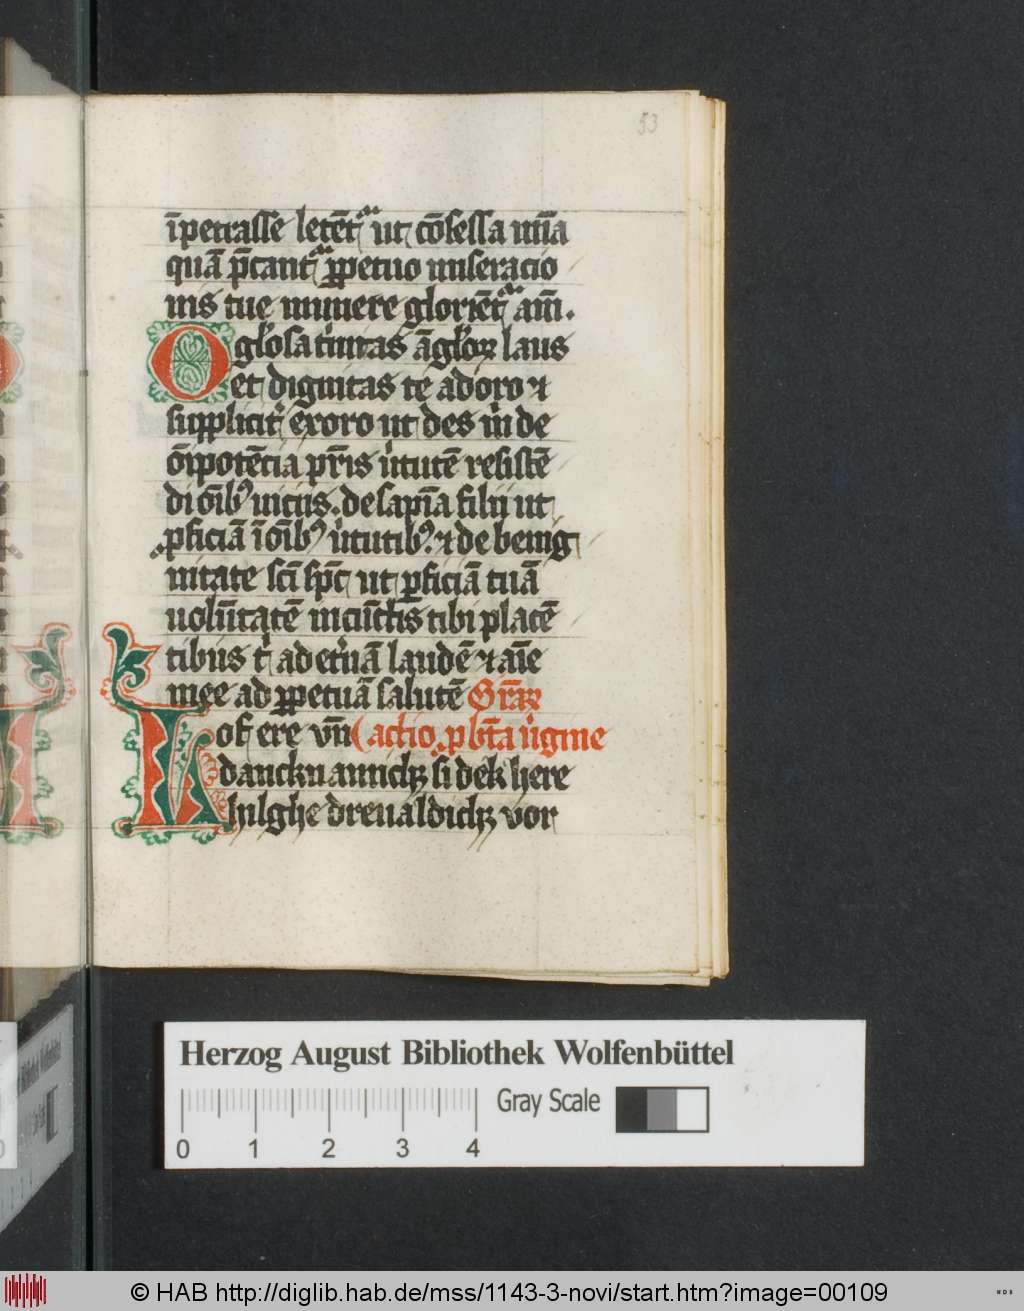 53
īpetrasse letēt᷑ ut cōfessa ut̄īa
quā p̄cant᷑ ꝑpetuo miseracio
nis tue munere gloriēt᷑ am̄.
O gl̓osa t̓nitas ā gl̓oꝝ laus
et dignitas te adoro ⁊
supplicit̓ exoro ut des m̓ de
ōīpotētia pr̄is v̓tutē resistē
di oīb⁹ uiciis. de sapīa filii ut
ꝓficiā ī oīb⁹ v̓tutib⁹. ⁊ de benig
nitate sc̄i sp̄c ut ꝑficiā tuā
uolūtatē placē
tibus t̓ ad et̓nā laudē ⁊ aīe
mee ad ꝑpetuā salutē Gr̄aꝝ
Lof ere vn̄ (actio p bt̄a v̓gine
danckn annichꝫ si dek here
hilghe dreualdichꝫ vor
Herzog August Bibliothek Wolfenbüttel
Gray Scale
0 1 2 3 4
© HAB http://diglib.hab.de/mss/1143-3-novi/start.htm?image=00109